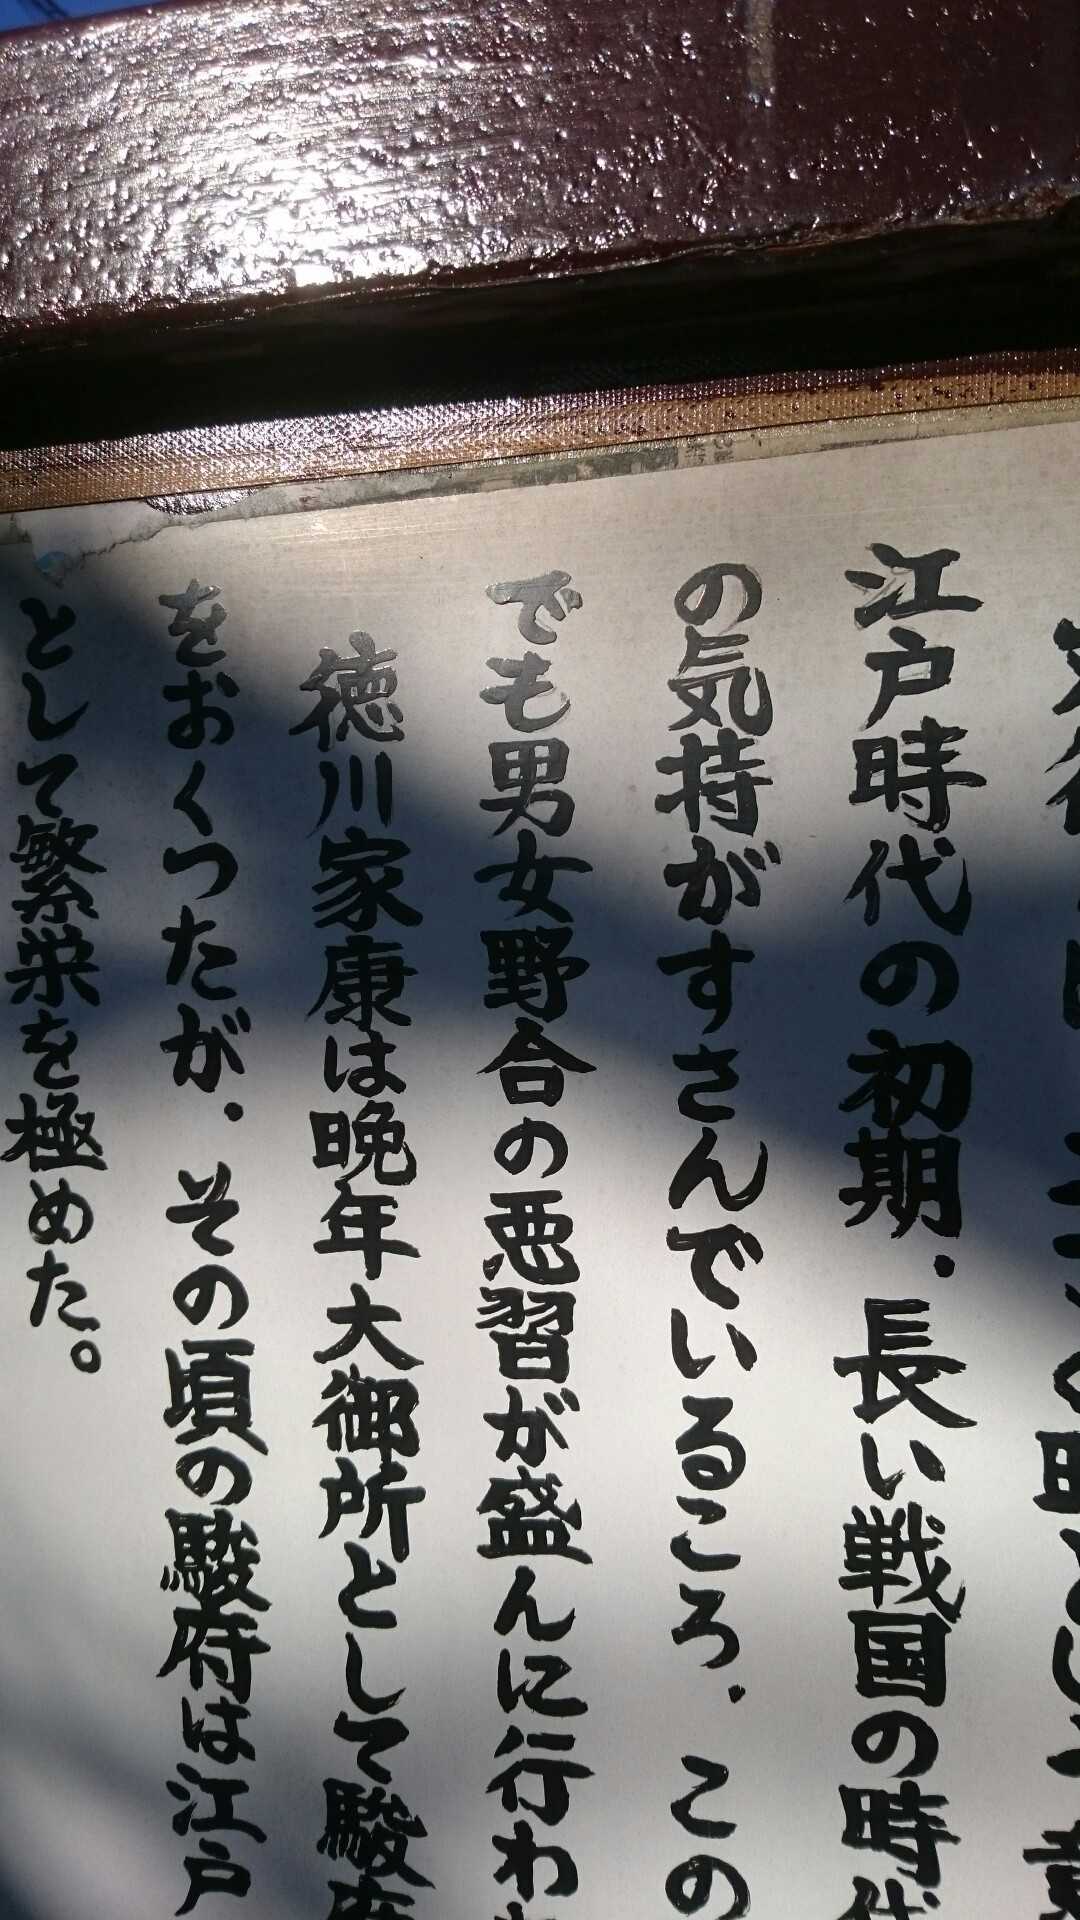 江戸時代の初期．長い戦国の時代
の気持がすさんでいるころ．この
でも男女野合の悪習が盛んに行わ
徳川家康は晩年大御所として駿府
をおくつたが．その頃の駿府は江戸
として繁栄を極めた。